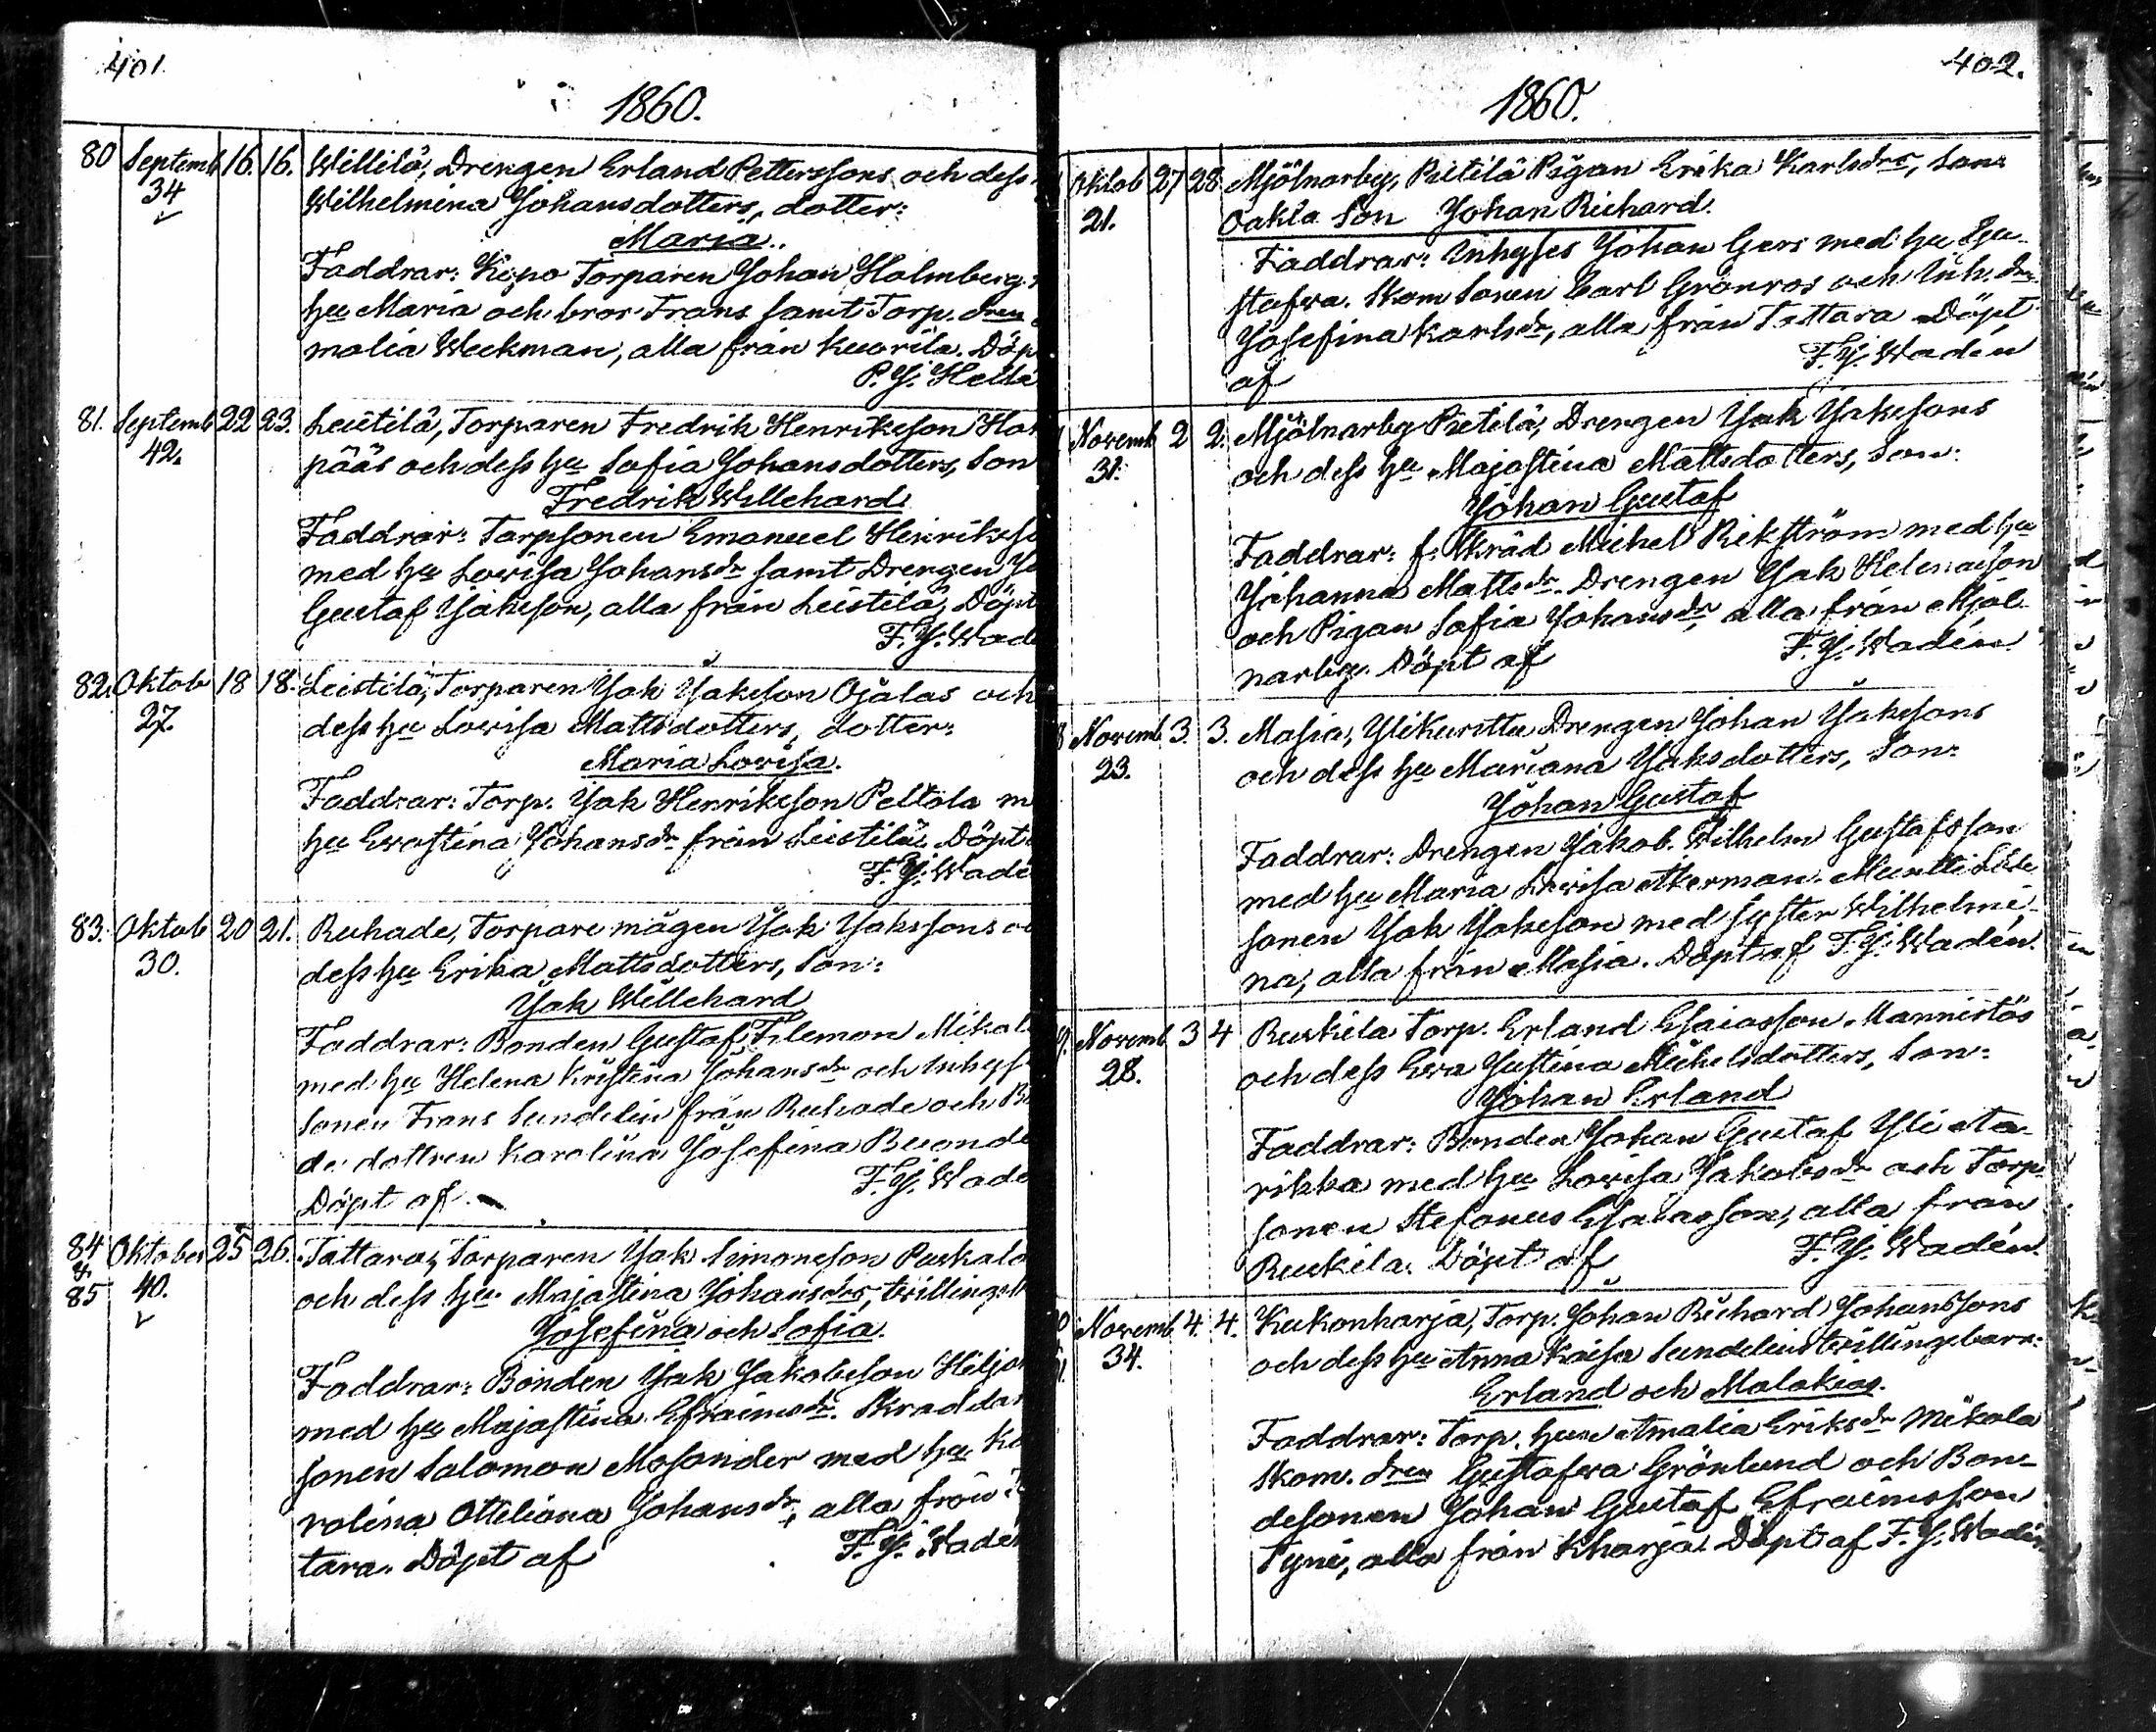 401.
1860.
80 Septemb 16. 16. Willilä, Drengen Erland Petterssons och dess
34 Wilhelmina Johansdotters, dotter:
Maria.
Faddrar: Kepo Torparen Johan Holmberg
hu Maria och bror Frans samt Torp. dren
malia Weckman, alla från Kuorila. Döp
P. J. Helle
81. Septemb 22 23. Leistilä, Torparen Fredrik Henriksson Ha
42. pääs och dess hu Sofia Johansdotters, Son
Fredrik Willehard
Faddrar: Torpsonen Emanuel Henrikss
med hu Lovisa Johansdr samt Drengen Jo
Gustaf Jakesson, alla från Leistilä, Döpt
F. J. Wade
82. Oktob 18 18. Leistilä, Torparen Jak Jaksson Ojalas och
27. dess hu Lovisa Mattsdotters, dotter:
Maria Lovisa.
Faddrar: Torp. Jak Henriksson Peltola m
hu Evastina Johansdr från Leistilä, Döpt
F. J. Wade
83. Oktob 20 21. Ruhade, Torpare mågen Jak Jakssons o
30. dess hu Erika Mattsdotters, Son:
Jak Willehard
Faddrar: Bonden Gustaf Filemon Mikal
med hu Helena Kristina Johansdr och Inhys
sonen Frans Sundelin från Ruhade och B
de dottren Karolina Josefina Buonde
Döpt af F. J. Wade
84 Oktober 25 26. Tattara, Torparen Jak Simonsson Puskala
&
85 40. och dess hu Majastina Johansdrs, tvillings
Josefina och Sofia.
Faddrar: Bonden Jak Jakobsson Heljo
med hu Majastina Efraimsdr. Skraddar
sonen Salomon Mosander med hu Ka
rolina Ottiliana Johansdr, alla från
tara. Döpt af F. J. Waden
402.
1860.
Oktob 27 28 Mjölnarby, Pietilä Pigan Erika Karlsdrs, Son:
21. Oäkla Son Johan Richard.
Faddrar: Inhyses Johan Gers med hu Gu-
stafva. Skom Sonen Carl Grönros och Inh. dr
Josefina Karlsdr, alla från Tattara Döpt
af F. J. Wadén
Novemb 2 2. Mjölnarby Pietilä, Drengen Jak Jakssons
31. och dess hu Majastina Mattsdotters, Son:
Johan Gustaf
Faddrar: f. Skräd Michel Rikström med hu
Johanna Mattsdr. Drengen Jak Helenasson
och Pigan Sofia Johansdr, alla från Mjöl
narby. Döpt af F. J. Wadén
Novemb 3. 3. Masia, Ylikuvittu Drengen Johan Jakssons
23. och dess hu Mariana Jaksdotters, Son:
Johan Gustaf
Faddrar: Drengen Jakob Wilhelm Gustafsson
med hu Maria Lovisa Åkerman.
sonen Jak Jaksson med syster Wilhelmi-
na, alla från Masia. Döpt af F. J. Wadén.
9. Novemb 3 4 Ruskila Torp. Erland Esaiasson Mannistös
28. och dess Eva Justina Michelsdotters, Son:
Johan Erland
Faddrar: Bonden Johan Gustaf Yli Ma-
rikka med hu Lovisa Jakobsdr och Torp.
sonen Stefanus Esaiasson, alla från
Ruskila. Döpt af F. J. Wadén.
Novemb 4. 4. Kukonharja, Torp. Johan Richard Johanssons
34. och dess hu Anna Kaisa Sundelins tvillingbarn:
Erland och Malakias.
Faddrar: Torp. hun Amalia Eriksdr Mikola
Skom. dren Gustafva Grönlund och Bon-
desonen Johan Gustaf Efraimsson
Tyni, alla från Kharja. Döpt af F. J. Wadén